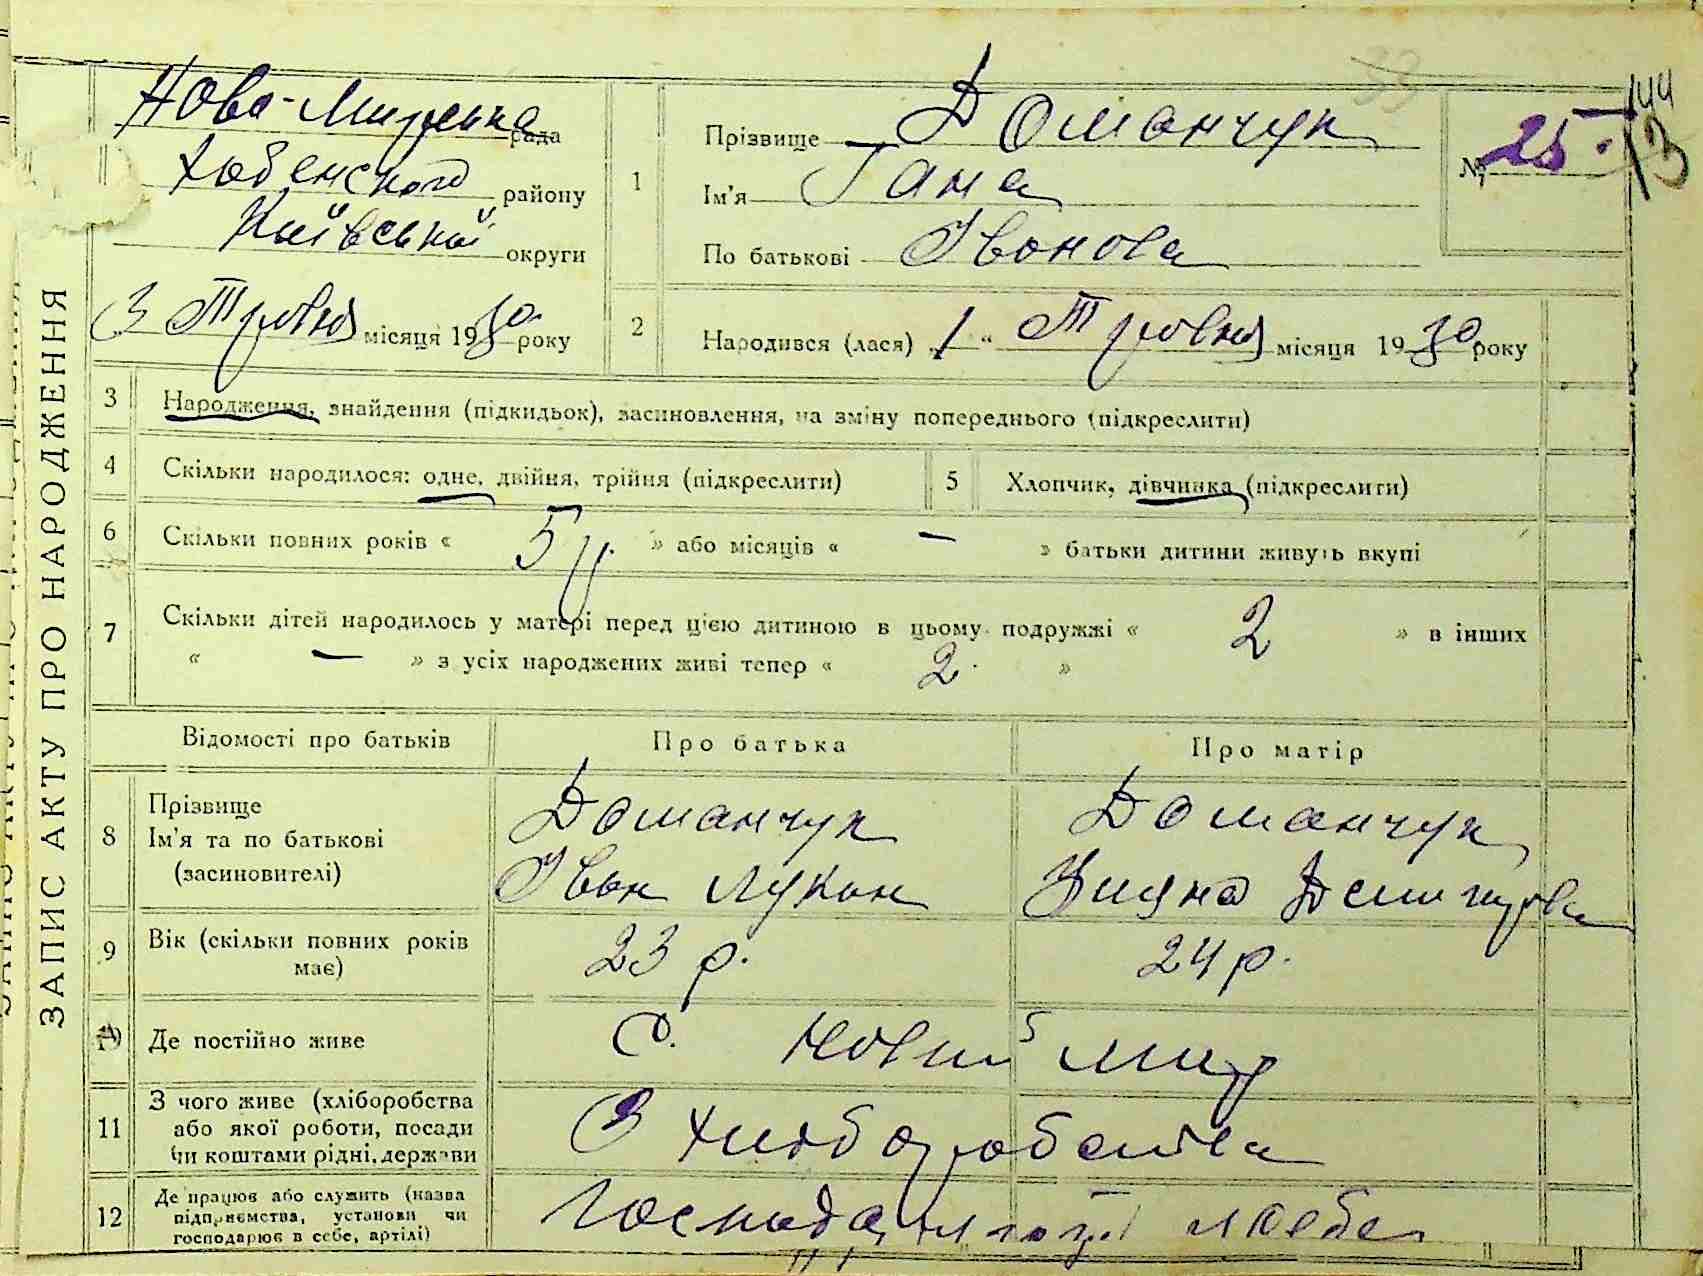 ЗАПИС АКТУ ПРО НАРОДЖЕННЯ
Ново-Мирська рада
Хабенського району
Київської округи
3 Травня місяця 1930 року
1
Прізвище Доманчук
Ім'я Гана
По батькові Івонова
№ 25.
144
13
2
Народився (лася) „1“ Травня місяця 1930 року
3 Народження, знайдення (підкидьок), засиновлення, на зміну попереднього (підкреслити)
4 Скільки народилося: одне, двійня, трійня (підкреслити)
5 Хлопчик, дівчинка (підкреслити)
6 Скільки повних років « 5 р. » або місяців « — » батьки дитини живуть вкупі
7 Скільки дітей народилось у матері перед цією дитиною в цьому подружжі « 2 » в інших
« — » з усіх народжених живі тепер « 2. »
Відомості про батьків Про батька Про матір
8 Прізвище Доманчук Доманчук
Ім'я та по батькові Іван Лукьн
(засиновителі)
9 Вік (скільки повних років має) 23 р. 24 р.
10 Де постійно живе С. Новий Мир
11 З чого живе (хліборобства або якої роботи, посади чи коштами рідні, держави З хліборобства
12 Де працює або служить (назва підприємства, установи чи господарює в себе, артілі) у себе